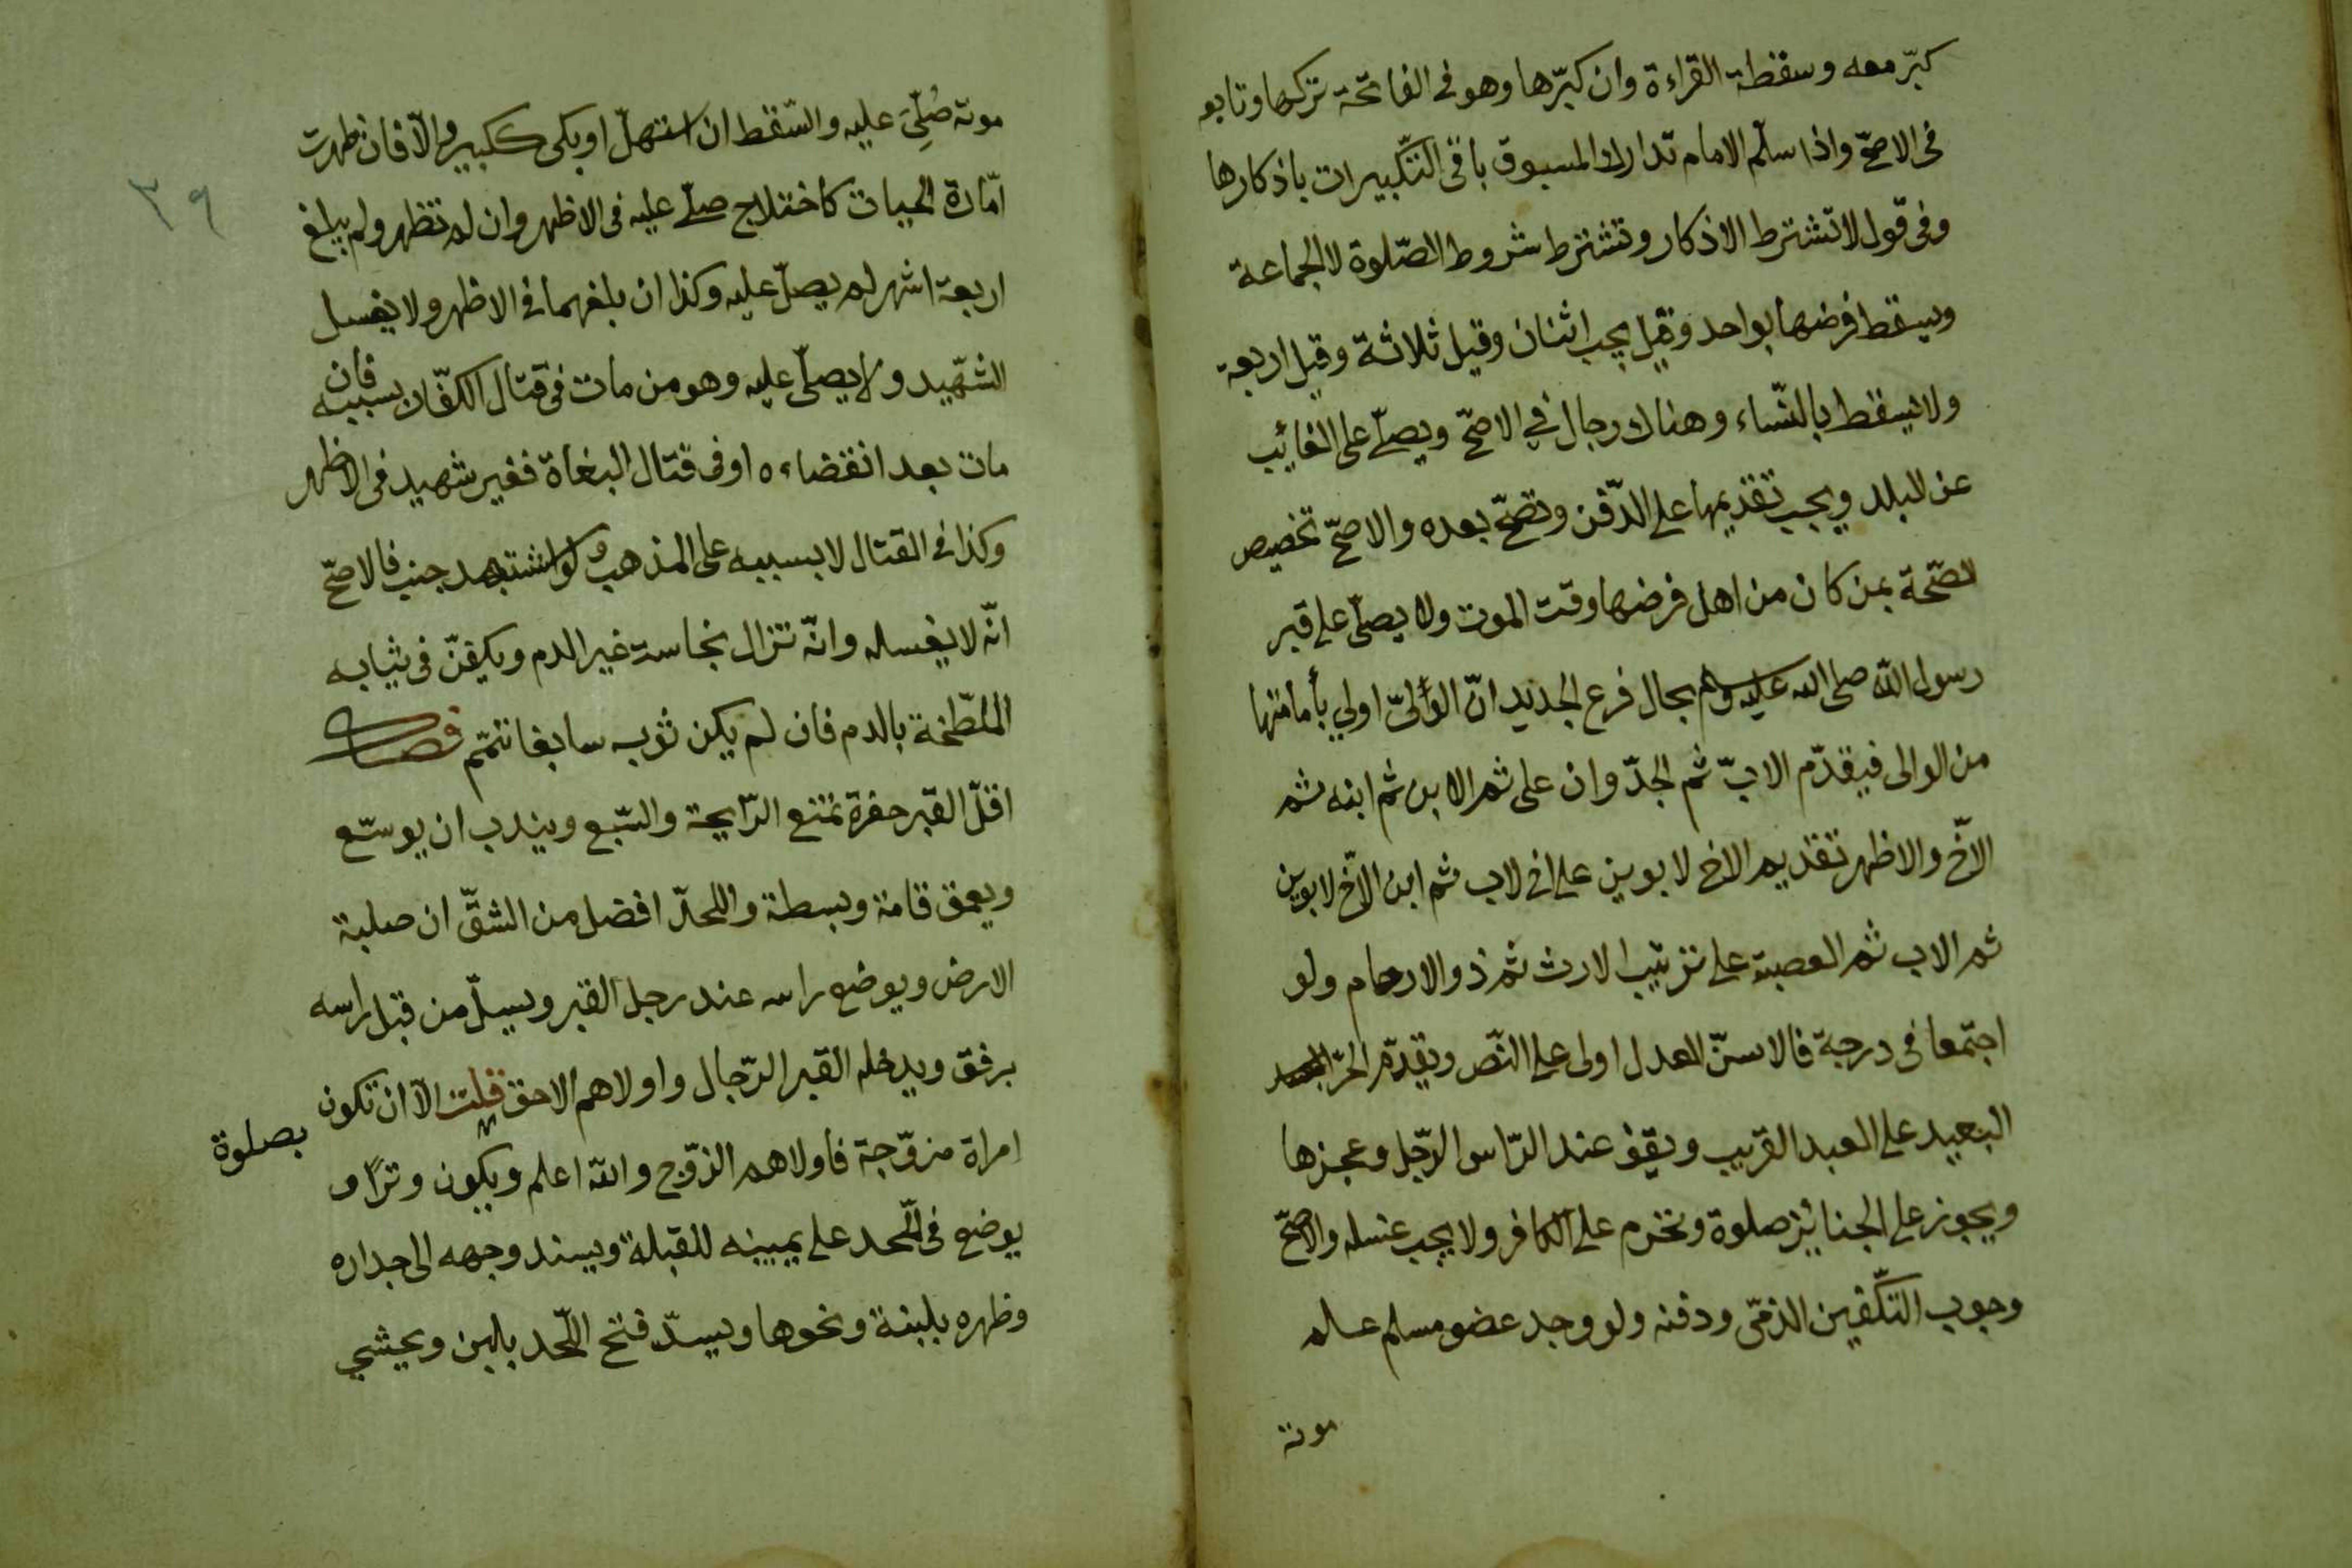 كبّر معه وسقطة القراءة وان كبّرها وهو فى الفاتحة تركها وتابو
فى الاصحّ واذا سلّم الامام تدارك المسبوق باقى التكبيرات باذكارها
وفى قول لا تشترط الاذكار وتشترط شروط الصّلوة لا الجماعة
ويسقط فرضها بواحد وقيل يجب اثنان وقيل ثلاثة وقيل اربعة
ولا تسقط بالنّساء وهناك رجال في الاصحّ ويصلّى على الغائب
عن البلد ويجب تقديمها على الدّفن وتصحّ بعده والاصحّ تخصيص
لصّحة بمن كان من اهل فرضها وقت الموت ولا يصلّى على قبر
رسول الله صلى الله عليه وسلم بحال فرع الجديد انّ الوليّ اولي بأمامتها
من الوالى فيقدّم الابّ ثم الجدّ وان على ثم الابن ثم ابنه ثم
الاخّ والاظهر تقديم الاخ لابوين على اخ لاب ثم ابن الاخّ لابوين
ثم الاب ثم العصبة على ترتيب الارث ثم ذوالارحام ولو
اجتمعا فى درجة فالاسنّ العدل اولى على النّص ويقدّم الحرّ
البعيد على العبد القريب ويقف عند الرّاس الرّجل وعجزها
ويجوز على الجنائز صلوة وتحرم على الكافر ولا يجب غسله والاصحّ
وجوب التكّفين الذمّى ودفنه ولو وجد عضو مسلم علم
موتة
موتة صُلِّيَ عليه والسّقط ان استهلّ او بكى ككبير والّا فان ظهرت
امّارة الحيات كاختلاج صلّى عليه فى الاظهر وان لم تظهر ولم يبلغ
اربعة اشهر لم يصلّ عليه وكذا ان بلغهما فى الاظهر ولا يغسل
الشّهيد ولا يصلّى عليه وهو من مات فى قتال الكفّار بسببه فان
مات بعد انقضاءه او فى قتال البغاة فغير شهيد فى الاظهر
وكذا فى القتال لا بسببه على المذهب ولو استشهد جنب فالاصحّ
انّه لا يغسله وانّه تزال نجاسة غير الدم ويكفّن فى ثيابه
الملطّخة بالدم فان لم يكن ثوبه سابغا تتمّم فصل
اقلّ القبر حفرة تمنع الرّايحة والسّبع ويندب ان يوسّع
ويعمق قامة وبسطة واللحدّ افضل من الشقّ ان صلبة
الارض ويوضع راسه عند رجل القبر ويسلّ من قبل راسه
برفق ويدخله القبر الرّجال واولاهم الاحق قلت الّا ان تكون
بصلوة
امراة مزوّجة فاولاهم الزوّج والله اعلم ويكون وترًا و
يوضع فى اللّحد على يمينه للقبلة ويسند وجهه الى جداره
وظهره بلبنة ونحوها ويسدّ فتح اللّحد بلبن ويحشى
٣٩